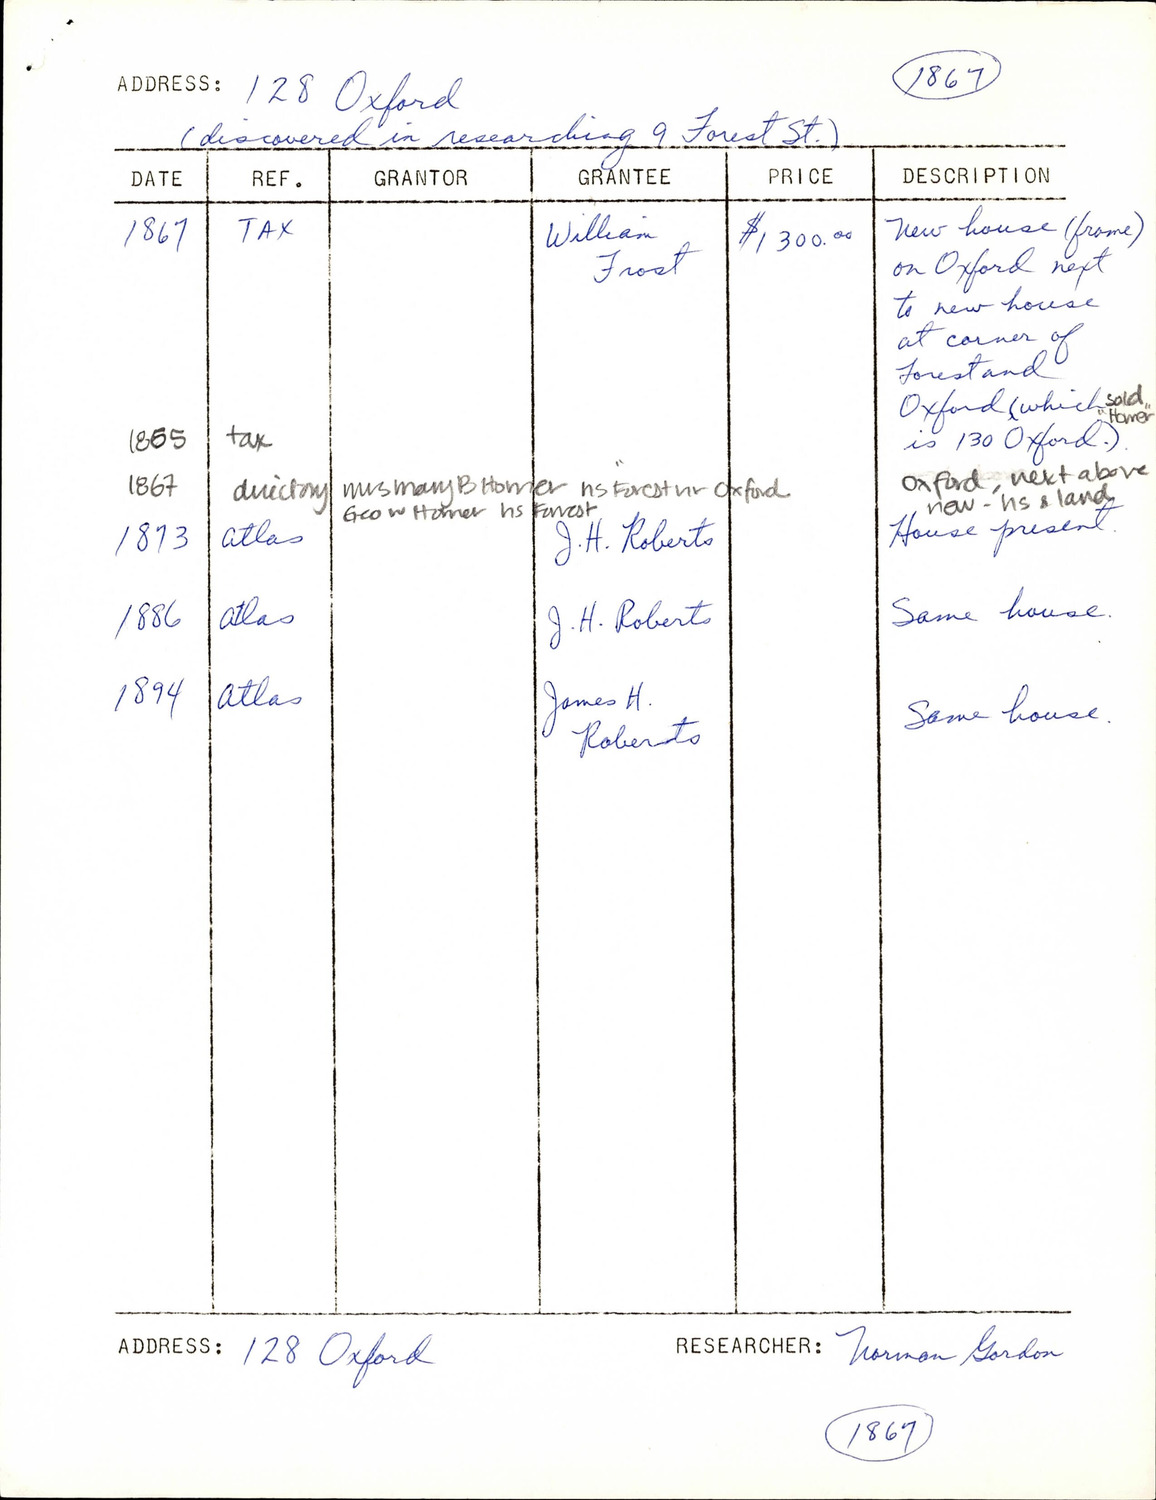 ADDRESS: 128 Oxford 1867
(discovered in researching 9 Forest St.)
DATE REF. GRANTOR GRANTEE PRICE DESCRIPTION
1867 TAX William Frost $1300.00 New house (frame)
on Oxford next
to new house
at corner of
Forest and
Oxford (which sold "Homer"
is 130 Oxford.)
1865 tax
1867 directory Mrs Mary B Homer hs Forest nr Oxford Oxford, next above
Geo W Homer hs Forest new - hs & land
1873 atlas J.H. Roberts House present.
1886 atlas J.H. Roberts Same house.
1894 atlas James H.
Roberts Same house.
ADDRESS: 128 Oxford RESEARCHER: Norman Gordon
1867